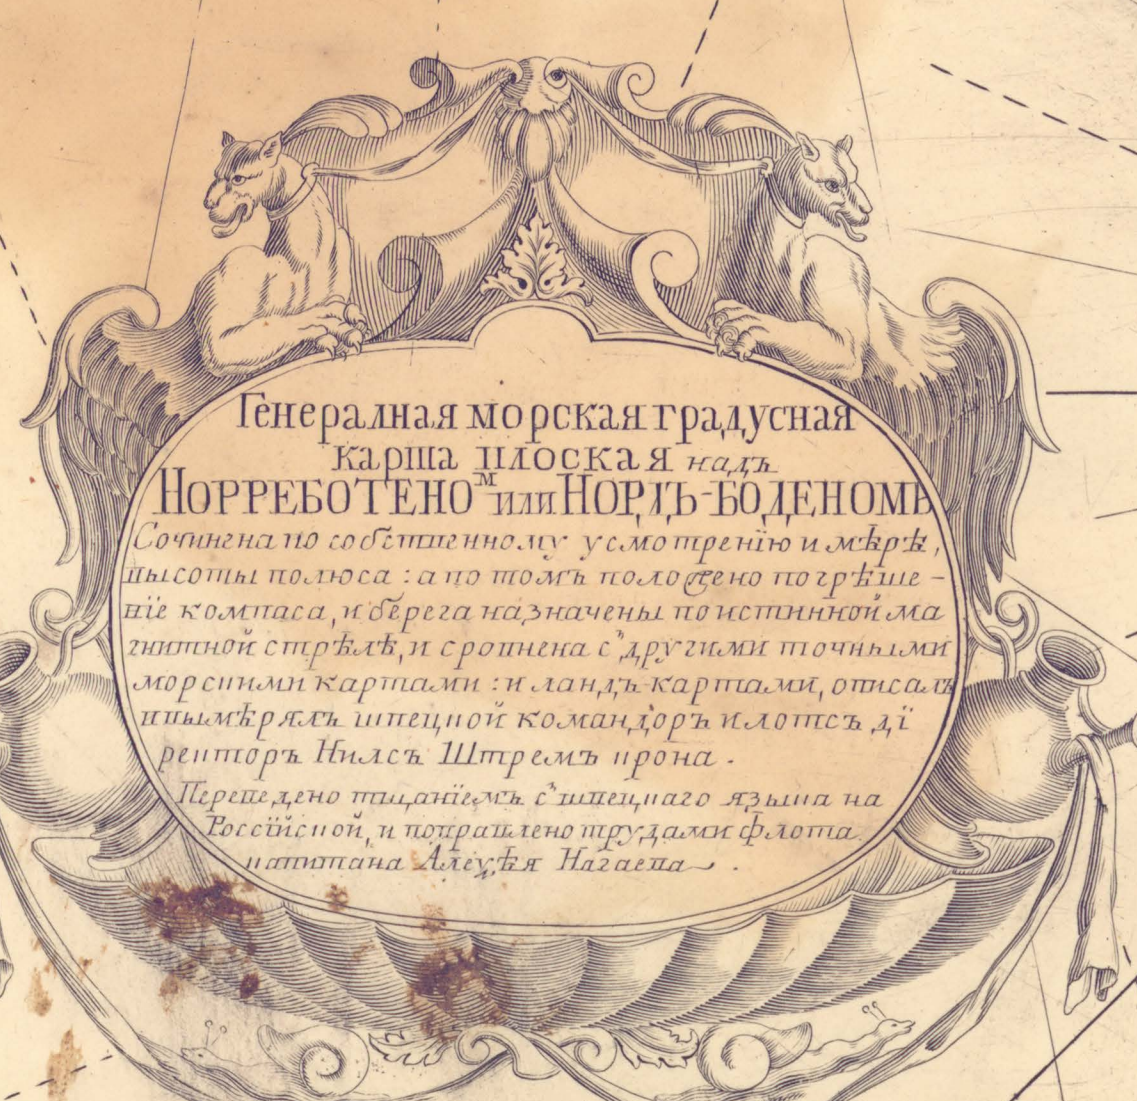 Генералная морская градусная
карта плоская надъ
НОРРЕБОТЕНОᴹ или НОРДЪ-БОДЕНОМЪ
Сочинена по собственному усмотренїю и мѣрѣ,
высоты полюса : а по томъ положено погрѣше-
нїе компаса, и берега назначены по истинной ма
гнитной стрѣлѣ, и сровнена с другими точными
морскими картами : и ландъ-картами, описалъ
и вымѣрялъ швецкой командоръ и лотсъ дї
ректоръ Нилсъ Штремъ крона.
Переведено тщанїемъ с швецкаго языка на
Россїйской, и поправлено трудами флота
капитана Алеѯѣя Нагаева.